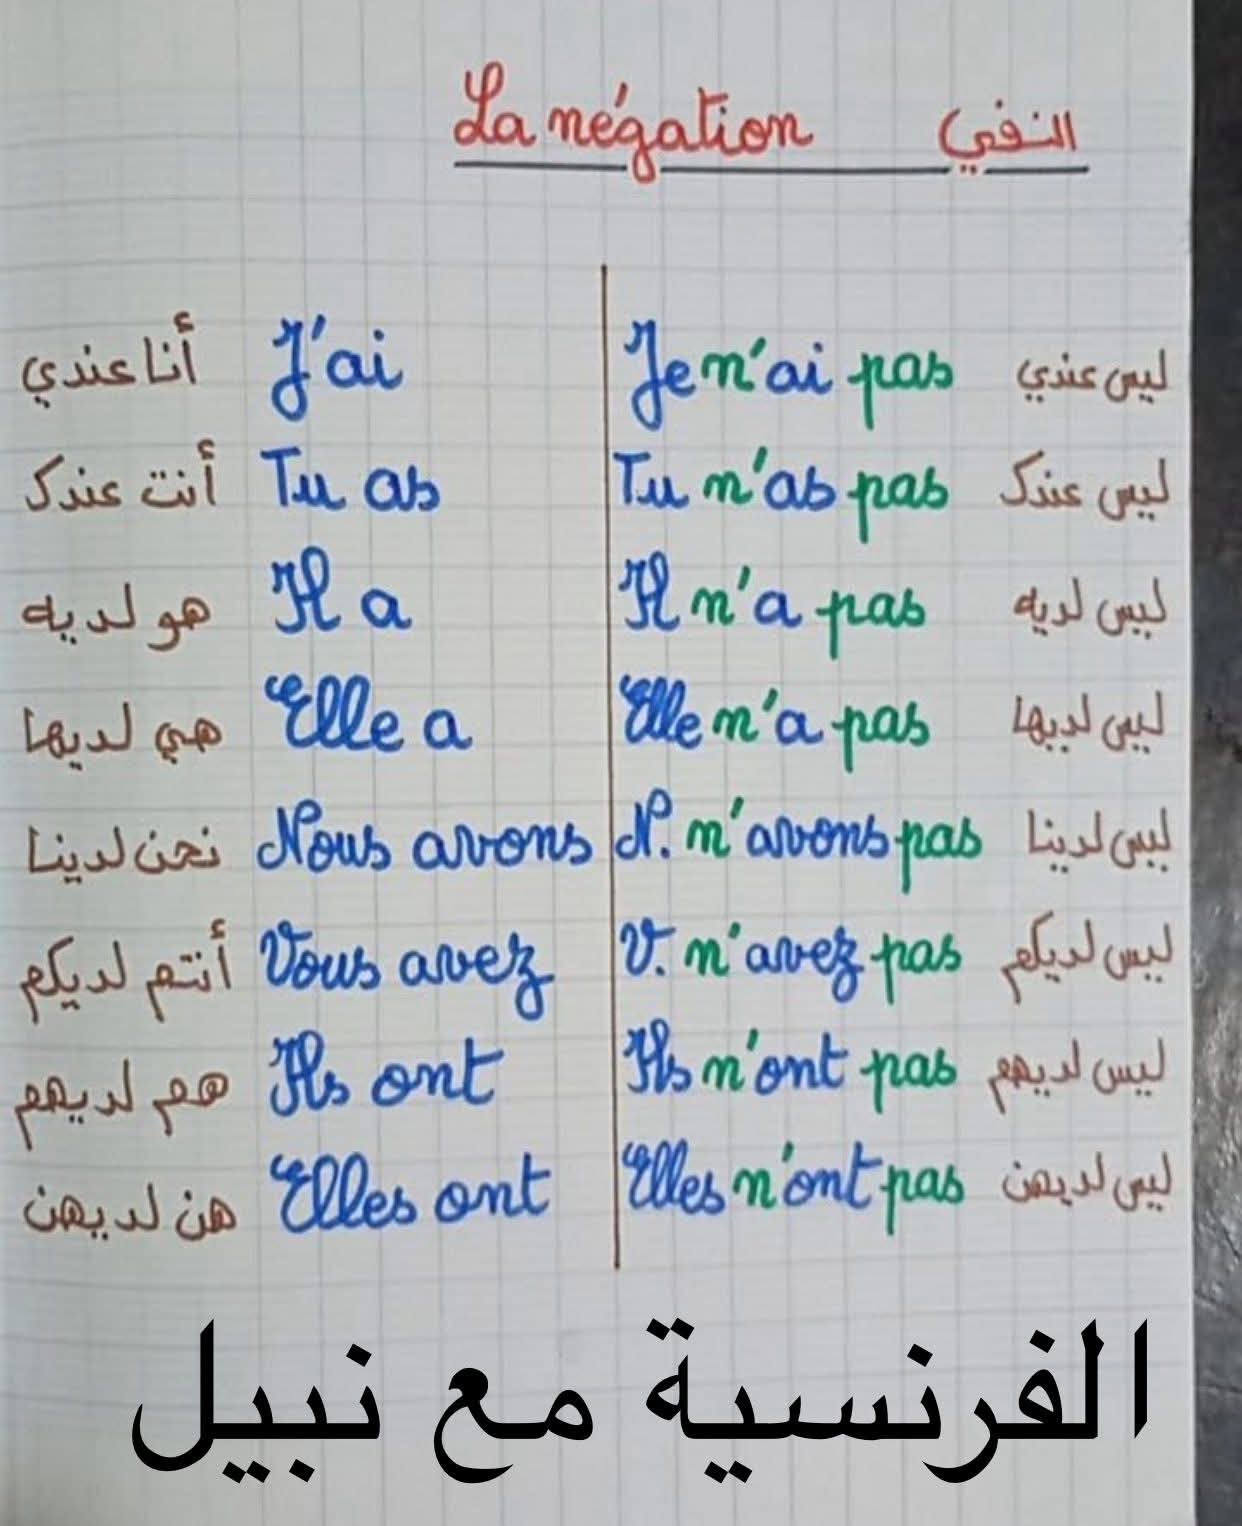 La négation النفي
أنا عندي J'ai Je n'ai pas ليس عندي
أنت عندك Tu as Tu n'as pas ليس عندك
هو لديه Il a Il n'a pas ليس لديه
هي لديها Elle a Elle n'a pas ليس لديها
نحن لدينا Nous avons N. n'avons pas ليس لدينا
أنتم لديكم Vous avez V. n'avez pas ليس لديكم
هم لديهم Ils ont Ils n'ont pas ليس لديهم
هن لديهن Elles ont Elles n'ont pas ليس لديهن
الفرنسية مع نبيل